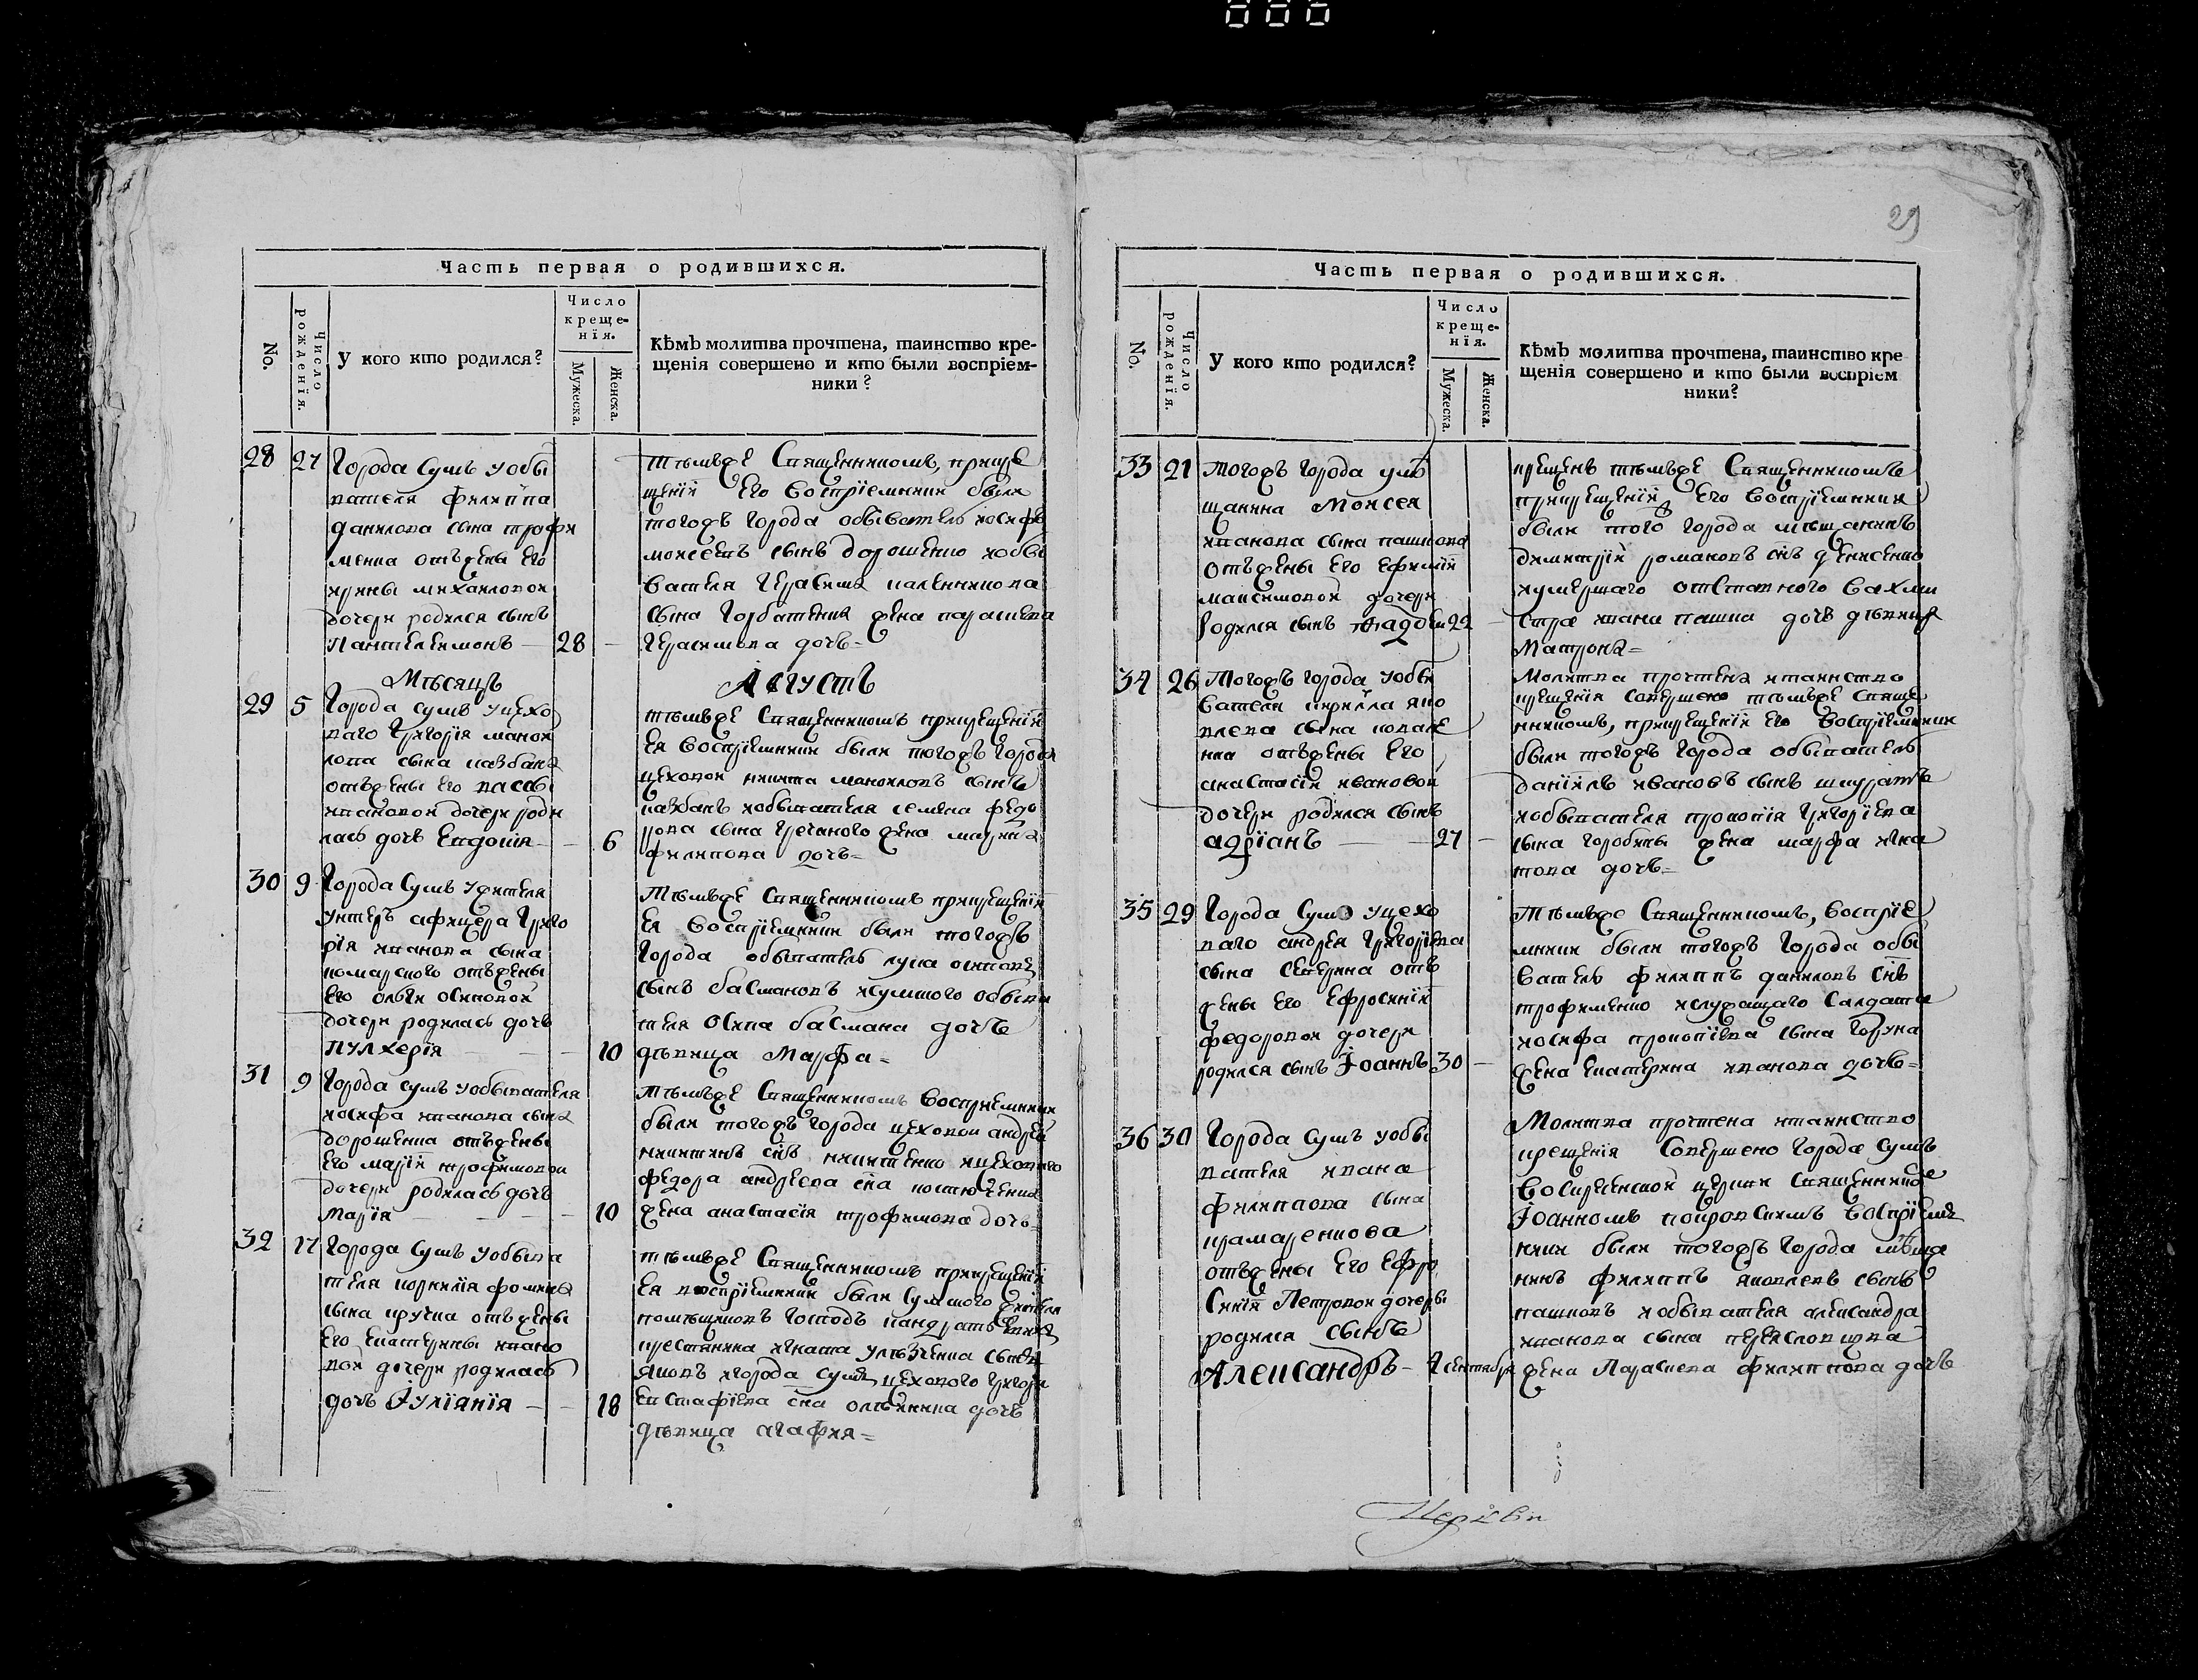 29
Часть первая о родившихся.
No.
Число рожденїя.
У кого кто родился?
Число
креще-
нїя.
Мужеска.
Женска.
Кѣмъ молитва прочтена, таинство кре-
щенїя совершено и кто были воспрїем-
ники?
28 27 Города Сумъ уобы
вателя филиппа
данилова сына трофи
менка отъ жены его
ирины михаиловой
дочери родился сынъ
Пантелеимонъ — 28 —
тѣмъже Священникомъ, прикре
щенїи Его Воспрїемники были
тогожъ города обыватель иосифъ
моисеевъ сынъ дорошенко иобы
вателя Герасима каленикова
сына Горбатенка жена параскева
Герасимова дочь =
Мѣсяцъ Августъ
29 5 Города сумъ уцехо
ваго Григорїя маной
лова сына казбана
отъ жены его вассы
ивановой дочери роди
лась дочь Евдокїя — — 6
тѣмъже Священникомъ прикрещенїи
Ея Воспрїемники были тогожъ города
цеховой никита манойловъ сынъ
казбанъ иобывателя семена федо
рова сына Гречаного жена марина
филипова дочь =
30 9 Города Сумъ ужителя
унтеръ афицера Григо
рїя иванова сына
комарского отъ жены
Его ольги осиповой
дочери родилась дочь
Пулхерїя — — — 10
Тѣмъже Священникомъ прикрещенїи
Ея Воспрїемники были тогожъ
Города обыватель лука осиповъ
сынъ басмановъ исумского обыва
теля Осипа басмана дочь
дѣвица Марфа =
31 9 Города сумъ уобывателя
иосифа иванова сына
дорошенка отъ жены
Его марїи трофимовой
дочери родилась дочь
Марїя — — — 10
Тѣмъже Священникомъ Воспрїемники
были тогожъ города цеховой андрей
никитинъ снъ никитенко ицехового
федора андреева сна костюченка
жена анастасїя трофимова дочь
32 17 Города Сумъ уобыва
теля корнилїя фомина
сына кручка отъ жены
Его Екатерины ивано
вой дочери родилась
дочь Іулїанїя — — 18
тѣмъже Священникомъ прикрещенїи
Ея воспрїемники были Сумского
помѣщиковъ Господъ кандратьевыхъ
крестянина игната сынъ
яковъ игорода сумъ цехового григорїя
Евстафїева сна олѣйника дочь
дѣвица агафия =
Часть первая о родившихся.
No.
Число рожденїя.
У кого кто родился?
Число
креще-
нїя.
Мужеска.
Женска.
Кѣмъ молитва прочтена, таинство кре
щенїя совершено и кто были воспрїем
ники?
33 21 Тогожъ города умѣ
щанина Моисея
иванова сына пашкова
отъ жены Его Ефимїи
максимовой дочери
родился сынъ Фаддей 22 —
крещенъ тѣмъже Священникомъ
прикрещенїи Его Воспрїемники
были того города мѣщанинъ
димитрїи романовъ снъ денисенко
иумершаго отставного Вахми
стра ивана пашка дочь дѣвица
Матрона =
34 26 Тогожъ города уобы
вателя кирилла яко
влева сына ковале
нка отъ жены Его
анастасїи ивановой
дочери родился сынъ
адрїанъ — — 27 —
Молитва прочтена итаинство
крещенїя совершено тѣмъже Свяще
нникомъ, прикрещенїи Его Воспрїемники
были тогожъ города обыватель
данїилъ ивановъ сынъ шкуратъ
иобывателя прокопїя Григорїева
сына Горобца жена марфа игна
това дочь =
35 29 Города Сумъ уцехо
ваго андрея Григорїева
сына Северина отъ
жены Его Ефросинїи
федоровой дочери
родился сынъ Іоаннъ 30 —
Тѣмъже Священникомъ, Воспрїе
мники были тогожъ Города обы
ватель филиппъ даниловъ снъ
трофименко ислужащаго Салдата
иосифа прокопїева сына Горуна
жена Екатерина иванова дочь =
36 30 Города Сумъ уобы
вателя ивана
филиппова сына
крамаренкова
отъ жены Его Ефро
Синїи Петровой дочери
родился сынъ
Александръ — 1 сентября
Молитва прочтена итаинство
крещенїя Совершено Города Сумъ
Воскресенской церкви Священникомъ
Іоанномъ покровскимъ Воспрїем
ники были тогожъ Города мѣща
нинъ филиппъ яковлевъ сынъ
пашковъ иобывателя александра
иванова сына
жена Параскева филиппова дочь
Церкви